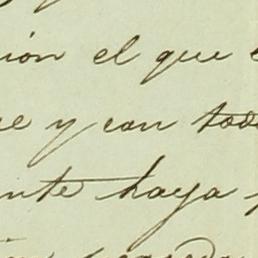 ión el que
e y con todo
ente haya